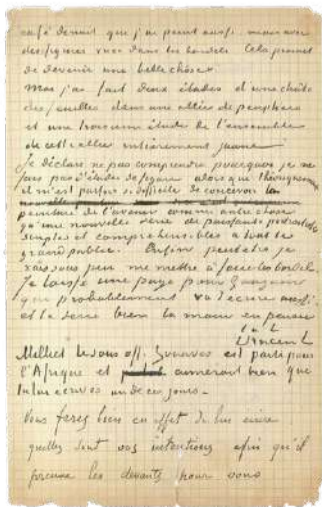 café de nuit que j'ai peint aussi mais avec
des figures vues dans les bordels. Cela promet
de devenir une belle chose.
Moi j'ai fait deux études d'une chûte
des feuilles dans une allée de peupliers
et une troisieme étude de l'ensemble
de cette allée entierement jaune.
Je déclare ne pas comprendre pourquoi je ne
fais pas d'études de figure alors que théoriquement
il m'est parfois si difficile de concevoir la
peinture de l'avenir comme autre chose
qu'une nouvelle série de puissants portraitistes
simples et comprehensibles à tout le
grand public. Enfin peutetre je
vais sous peu me mettre à faire les bordels.
Je laisse une page pour Gauguin
qui probablement va t'écrire aussi
et te serre bien la main en pensée
t. à t.
Vincent
Milliet le sous off. Zouaves est parti pour
l'Afrique et aimerait bien que
tu lui ecrives un de ces jours.
Vous ferez bien en effet de lui écrire
quelles sont vos intentions afin qu'il
prenne les devants pour vous